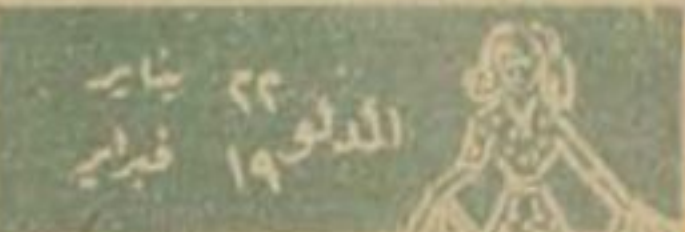 الدلو
٢٢ يناير
١٩ فبراير